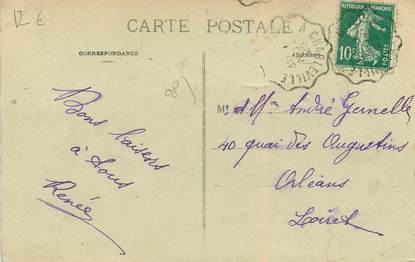 12 €
CARTE POSTALE
CORRESPONDANCE
RÉPUBLIQUE FRANÇAISE
10c
POSTES
A CHARLEVILLE
08
Bons baisers
à tous
Renée
Mr et Mme André
40 quai des Augustins
Orléans
Loiret